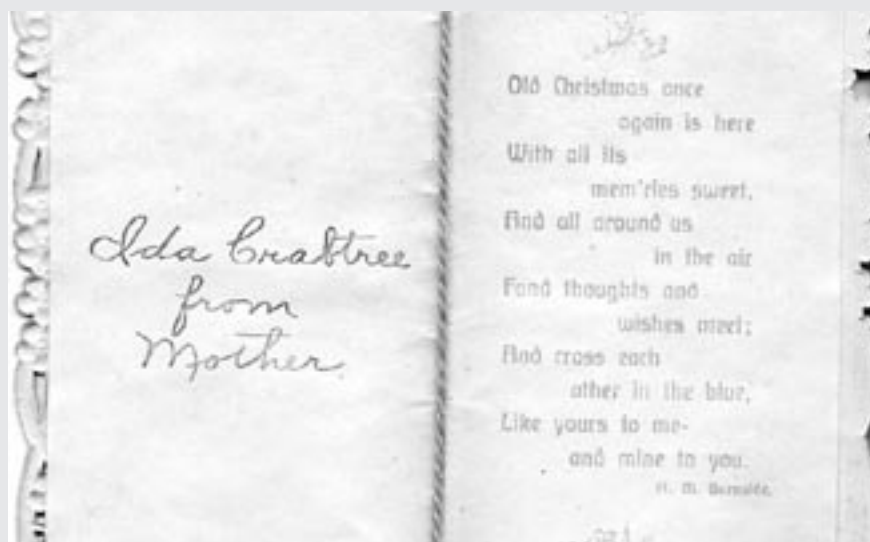 Ida Crabtree
from
Mother
Old Christmas once
again is here
With all its
mem'ries sweet,
And all around us
in the air
Fond thoughts and
wishes meet;
And cross each
other in the blue,
Like yours to me-
and mine to you.